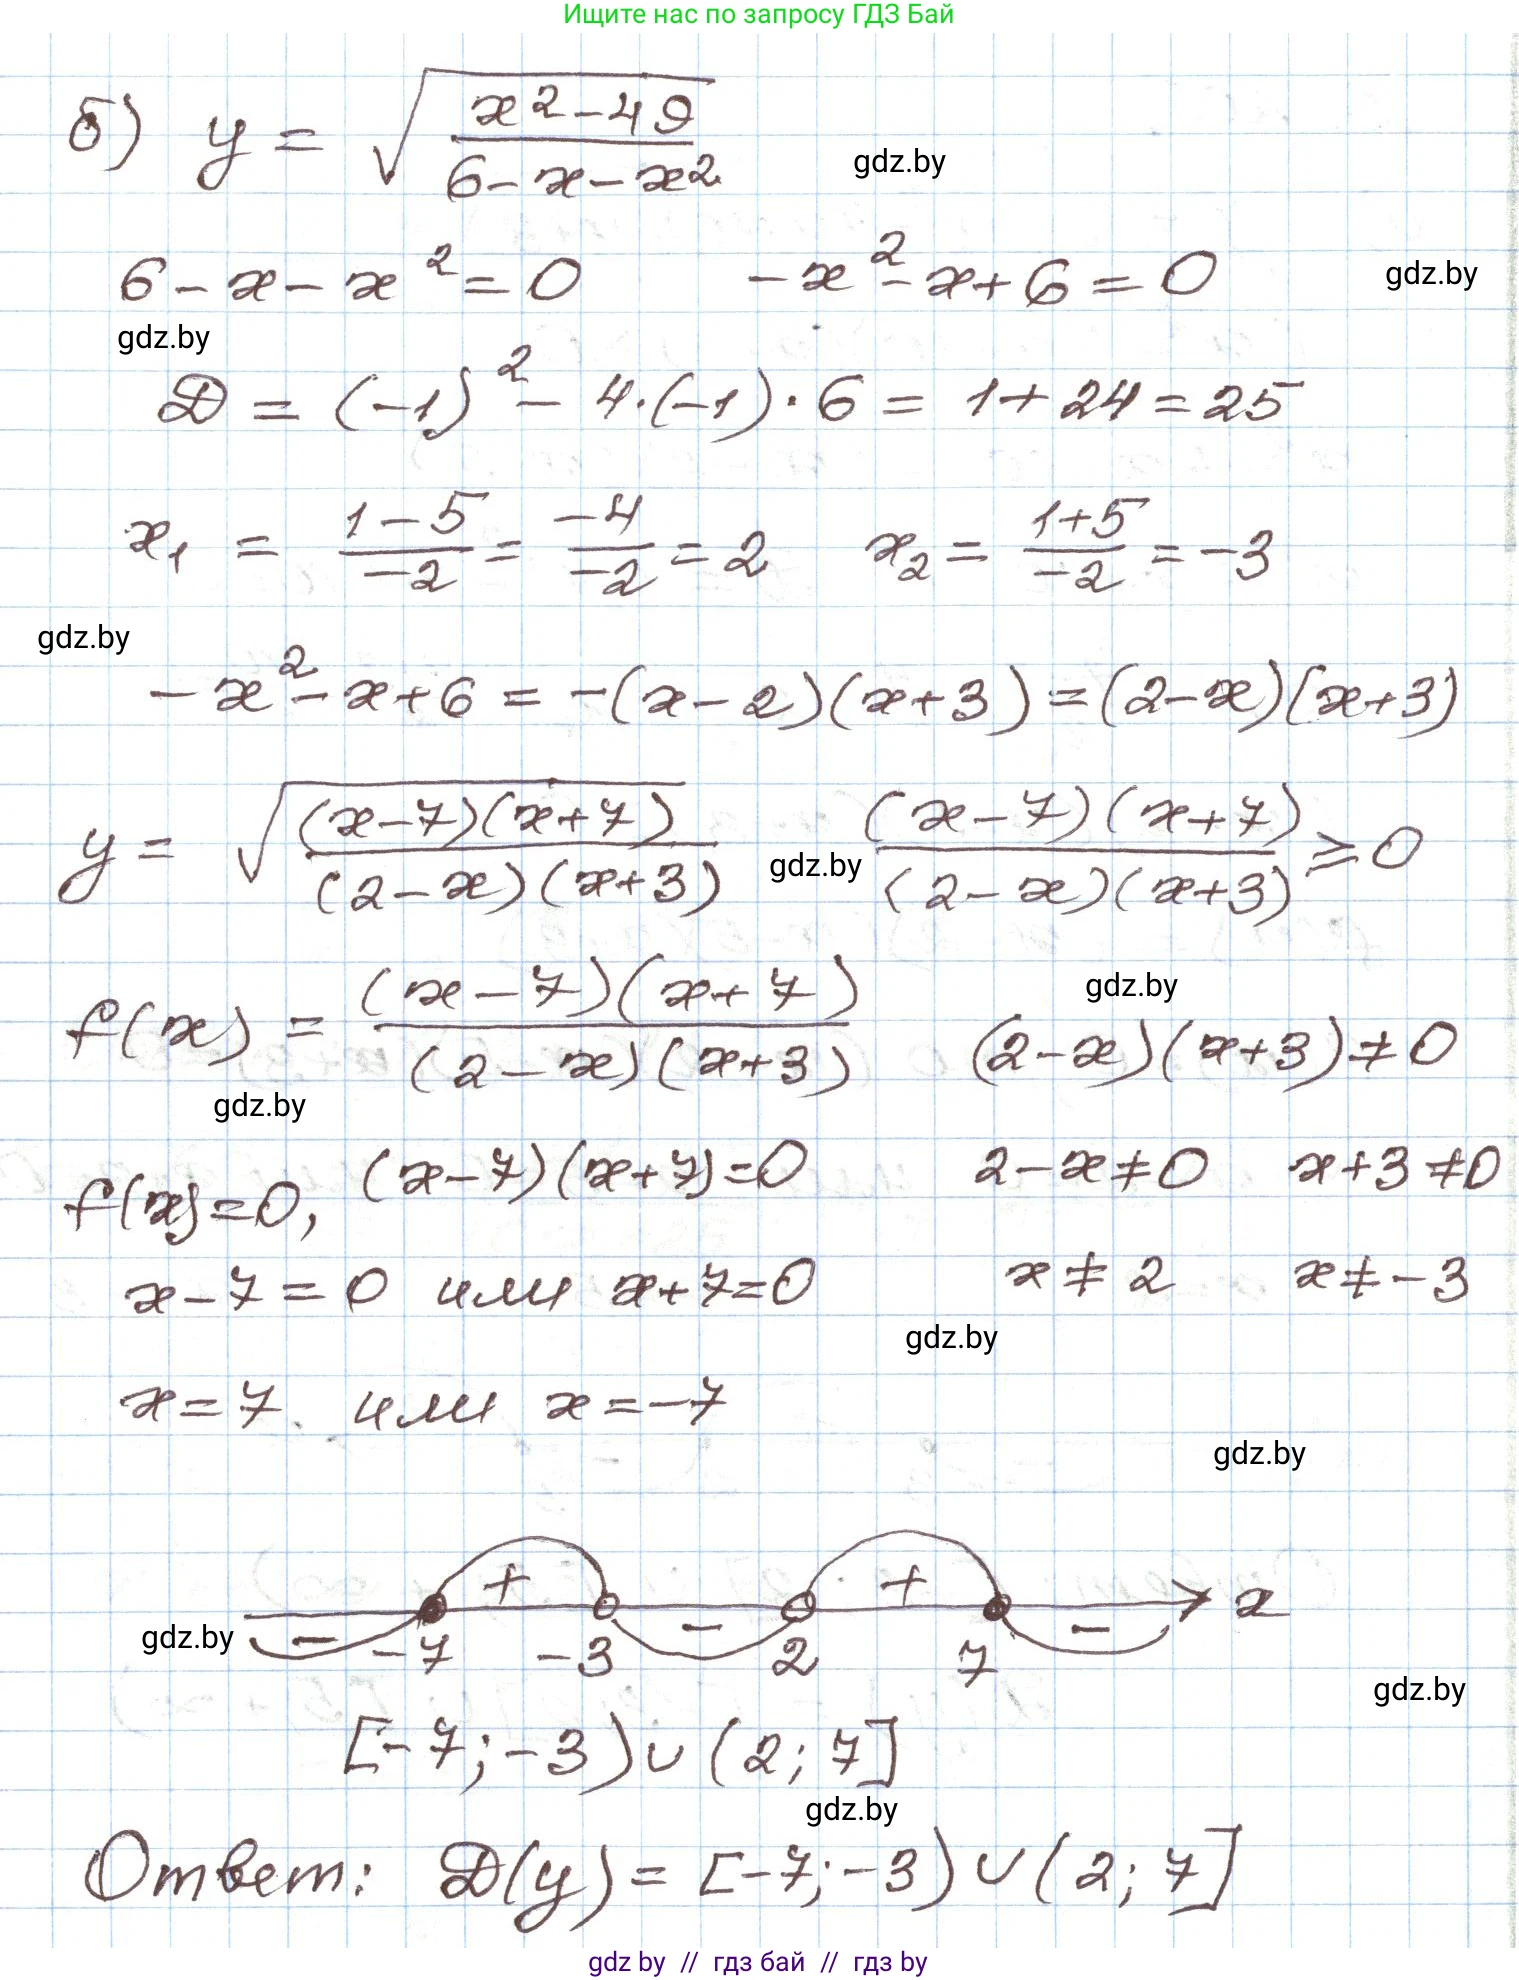 Ищите нас по запросу ГДЗ Бай
б) y = √((x² - 49)/(6 - x - x²))
gdz.by
6 - x - x² = 0    -x² - x + 6 = 0
gdz.by
gdz.by
D = (-1)² - 4·(-1)·6 = 1 + 24 = 25
x₁ = (1 - 5)/(-2) = (-4)/(-2) = 2    x₂ = (1 + 5)/(-2) = -3
gdz.by
-x² - x + 6 = -(x - 2)(x + 3) = (2 - x)(x + 3)
y = √(((x - 7)(x + 7))/((2 - x)(x + 3)))    ((x - 7)(x + 7))/((2 - x)(x + 3)) ≥ 0
gdz.by
gdz.by
f(x) = ((x - 7)(x + 7))/((2 - x)(x + 3))    (2 - x)(x + 3) ≠ 0
gdz.by
f(x) = 0, (x - 7)(x + 7) = 0    2 - x ≠ 0    x + 3 ≠ 0
x - 7 = 0 или x + 7 = 0    x ≠ 2    x ≠ -3
gdz.by
x = 7 или x = -7
gdz.by
- + - + - x
gdz.by
-7 -3 2 7
gdz.by
[-7; -3) ∪ (2; 7]
gdz.by
Ответ: D(y) = [-7; -3) ∪ (2; 7]
gdz by // гдз бай // гдз by